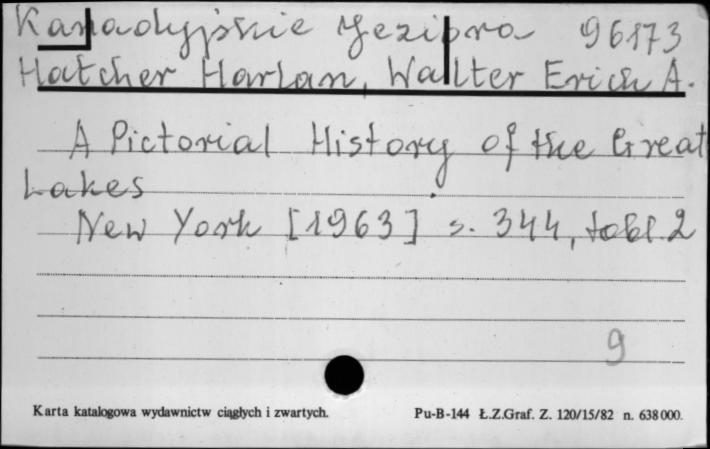 Kanadyjskie Jeziora 96173
Hatcher Harlan, Walter Erich A.
A Pictorial History of the Great
Lakes
New York [1963] s. 344, tabl. 2
9
Karta katalogowa wydawnictw ciągłych i zwartych. Pu-B-144 Ł.Z.Graf. Z. 120/15/82 n. 638000.